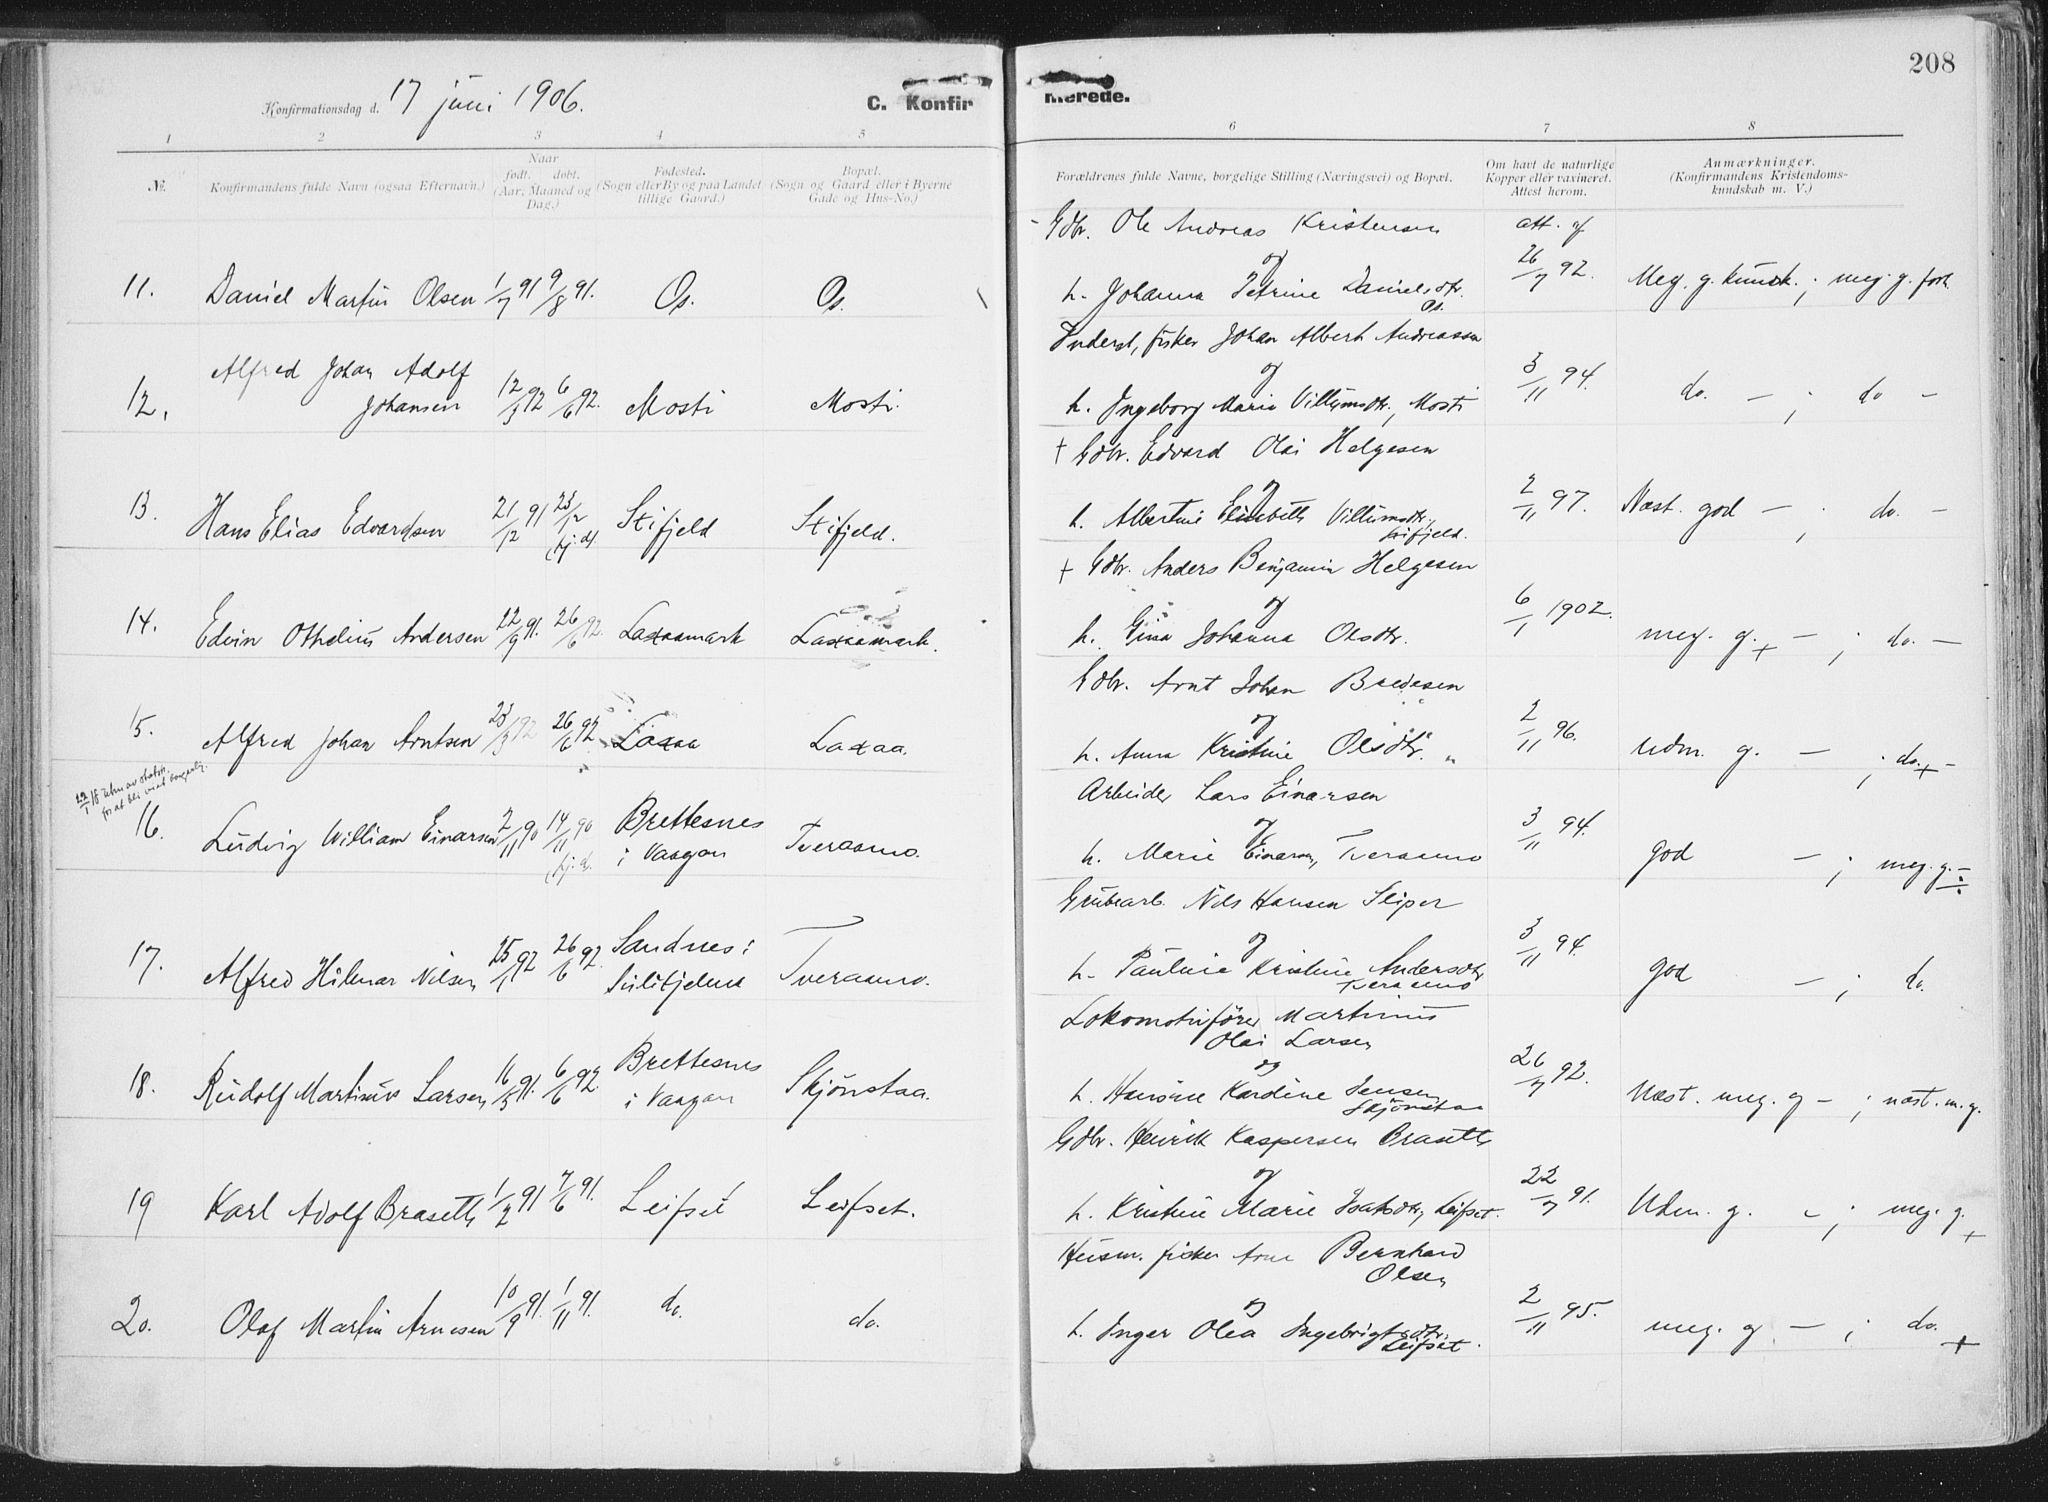 208
Konfirmationsdag d. 17 juni 1906.
C. Konfirmerede.
1 2 3 4 5 6 7 8
№.
Konfirmandens fulde Navn (ogsaa Efternavn.)
Naar født. døbt. (Aar, Maaned og Dag.)
Fødested. (Sogn eller By og paa Landet tillige Gaard.)
Bopæl. (Sogn og Gaard eller i Byerne Gade og Hus-No.)
Forældrenes fulde Navne, borgelige Stilling (Næringsvei) og Bopæl.
Om havt de naturlige Kopper eller vaxineret. Attest herom.
Anmærkninger. (Konfirmandens Kristendomskundskab m. V.)
Gdbr. Ole Andreas Kristensen att. af
og
11. Daniel Martin Olsen 1/7 91 9/8 91. Os. Os. h. Johanna Petrine Danielsdtr. Os. 26/7 92. Meg. g. kundsk. ; meg. g. forh.
Inderst, fisker Johan Albert Andreassen
og
12. Alfred Johan Adolf Johansen 12/3 92 6/6 92. Mosti Mosti. h. Ingeborg Marie Villumsdtr., Mosti 3/11 94. do. – ; do –
+ Gdbr. Edvard Olai Helgesen
og
13. Hans Elias Edvardsen 21/12 91 23/12 (hj. d) Stifjeld Stifjeld. h. Albertine Elisabeth Villumsdtr. Stifjeld. 2/11 97. Næst. god – ; do. –
+ Gdbr. Anders Benjamin Helgesen
og
14. Edvin Othelius Andersen 22/9 91. 26/6 92. Laxaamark Laxaamark. h. Gina Johanna Olsdtr. 6/1 1902. meg. g. + – ; do. –
Gdbr. Arnt Johan Bredesen
og
15. Alfred Johan Arntsen 23/3 92 26/6 92. Laxaa Laxaa. h. Anna Kristine Olsdtr. " 2/11 96. udm. g. – ; do. + –
Arbeider Lars Einarsen
og
16. Ludvig William Einarsen 7/11 90 14/11 90 (hj. d. Brettesnes i Vaagan Tveraamo. h. Marie Einarsen, Tveraamo 3/11 94. god – ; meg. g. –
Grubearb. Nils Hansen Sliper
og
17. Alfred Hilmar Nilsen 25/1 92 26/6 92. Sandnes i Sulitjelma Tveraamo. h. Pauline Kristine Andersdtr Tveraamo 3/11 94. god – ; do.
Lokomotivfører Martinus Olai Larsen
og
18. Rudolf Martinus Larsen 16/5 91. 6/6 92. Brettesnes i Vaagan Skjönstaa. h. Hansine Kardine Jensen Skjönstaa 26/7 92. Næst. meg. g – ; næst. m. g.
Gdbr. Henrik Kaspersen Braseth
og
19 Karl Adolf Braseth 1/2 91 7/6 91. Leifset Leifset. h. Kristine Marie Isaksdtr, Leifset. 22/7 91. Udm. g. – ; meg. g. +
Husm. fisker Arne Bernhard Olsen
og
20. Olaf Martin Arnesen 10/9 91. 1/11 91. do. do. h. Inger Olea Ingebrigtsdtr. Leifset. 2/11 95. meg. g – ; do. +